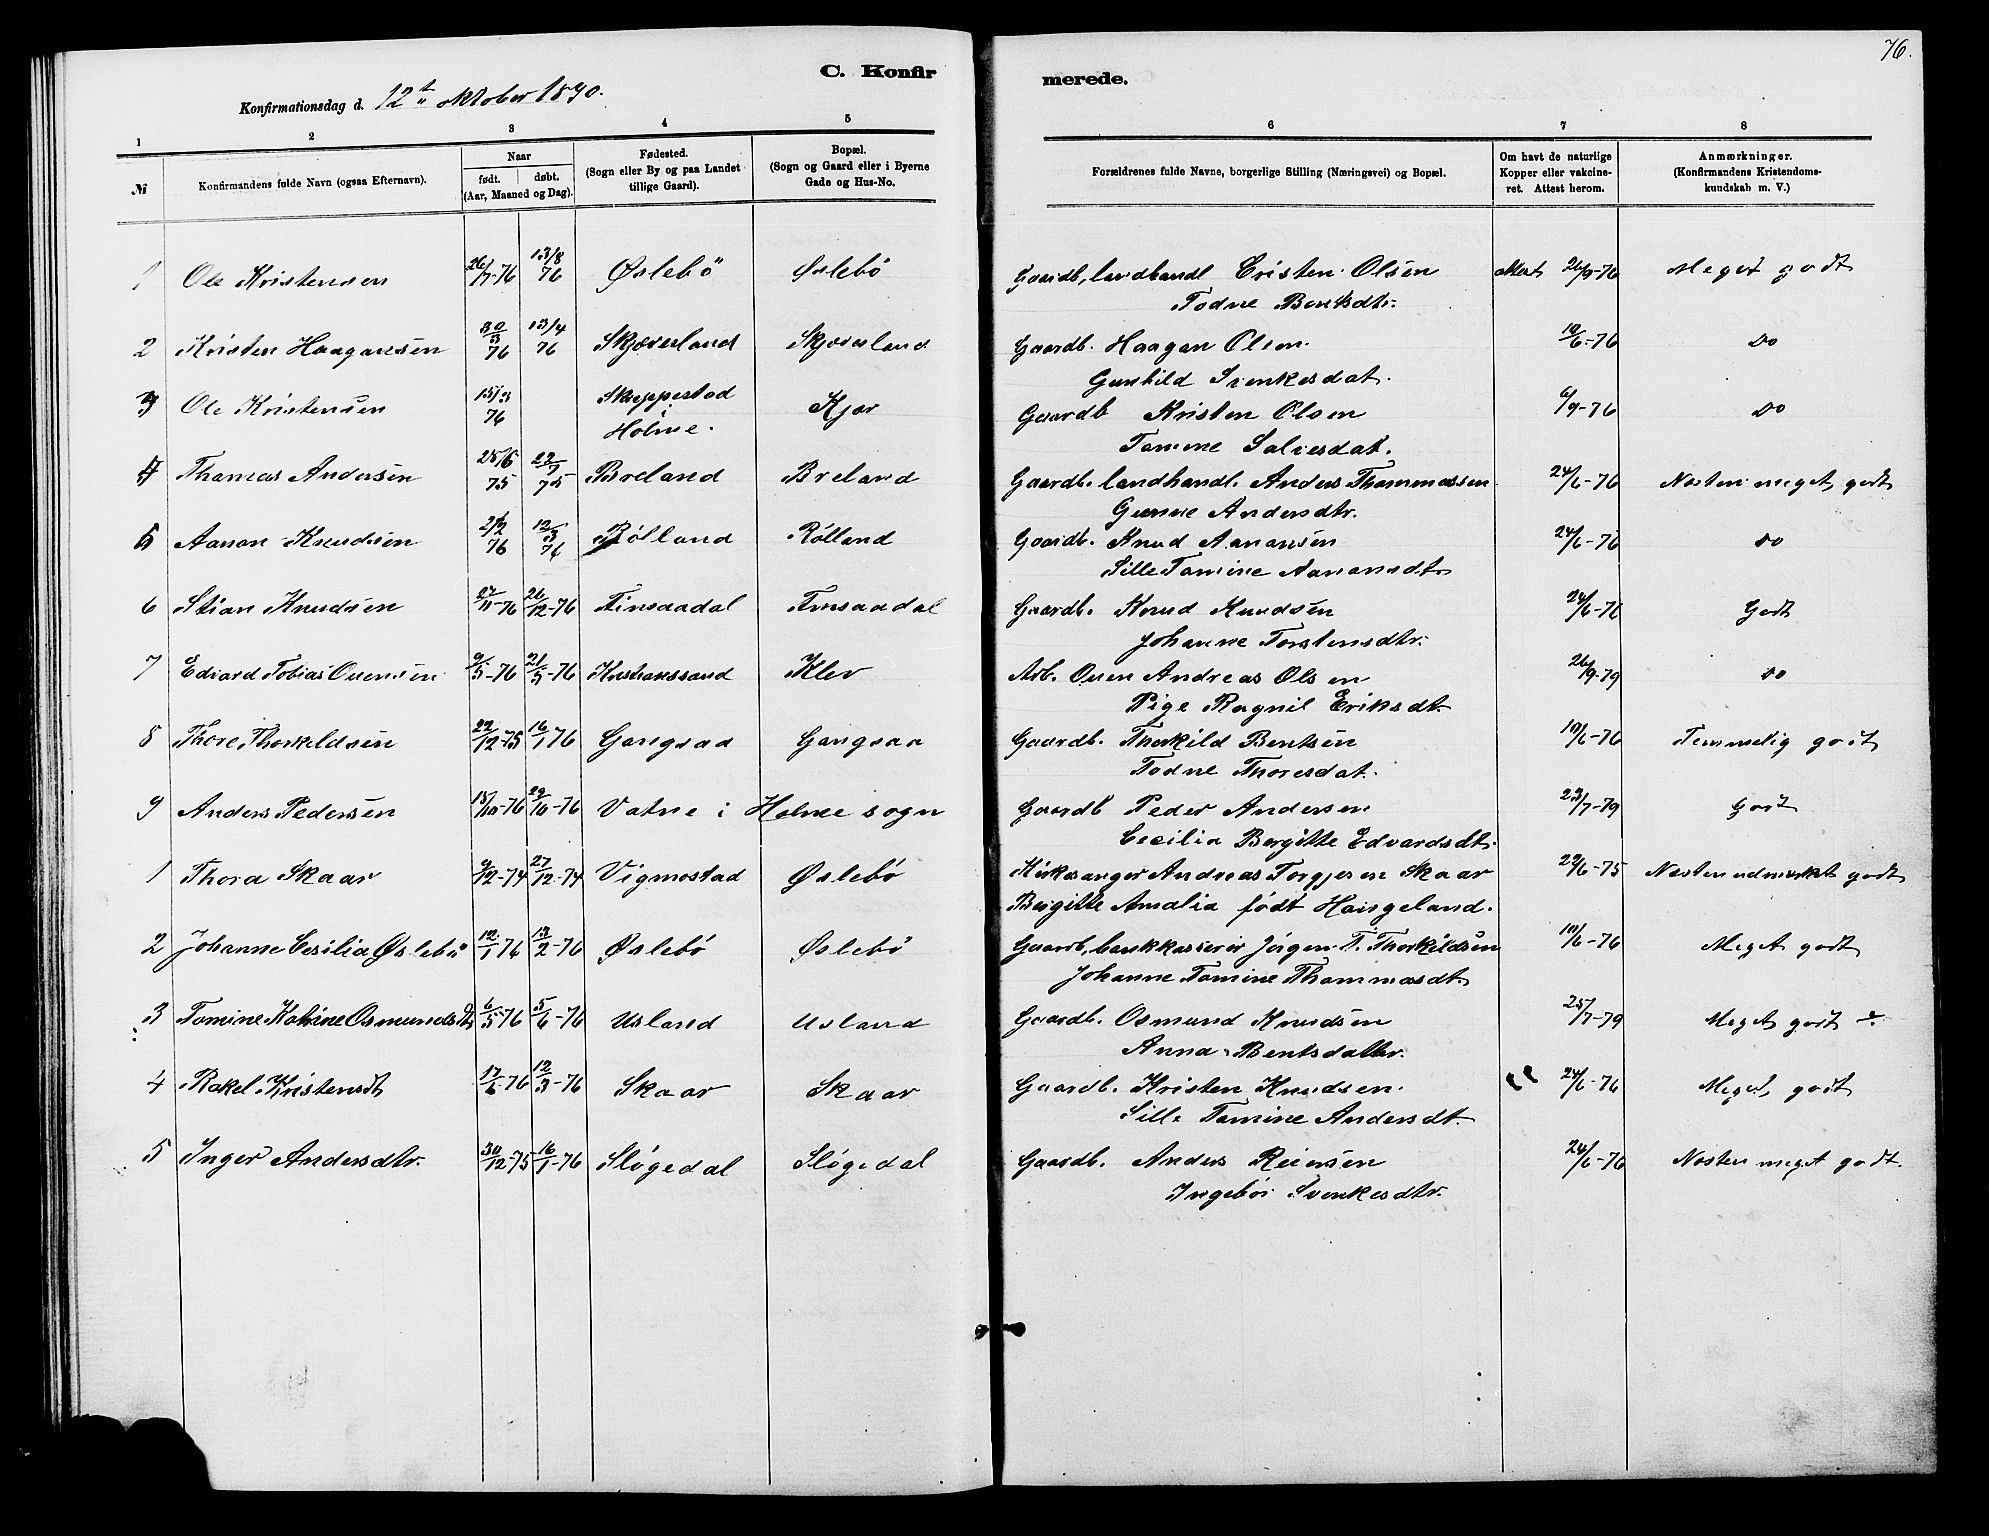 76.
C. Konfir merede.
Konfirmationsdag d. 12te oktober 1890.
1 2 3 4 5 6 7 8
№ Konfirmandens fulde Navn (ogsaa Efternavn). Naar født. døbt. (Aar, Maaned og Dag). Fødested. (Sogn eller By og paa Landet tillige Gaard). Bopæl. (Sogn og Gaard eller i Byerne Gade og Hus-No. Forældrenes fulde Navne, borgerlige Stilling (Næringsvei) og Bopæl. Om havt de naturlige Kopper eller vakcineret. Attest herom. Anmærkninger. (Konfirmandens Kristendomskundskab m. V.)
1 Ole Kristensen 26/7-76 13/8 76 Øslebö Øslebö Gaardb, landhandl Cristen Olsen attest 26/9-76 Meget godt
Todne Bentsdtr.
2 Kristen Haagansen 30/3 76 13/4 76 Skjæveland Skjæveland Gaardb. Haagan Olsen 10/6-76 Do
Gunhild Svenkesdat.
3 Ole Kristensen 15/3 76 Skeppestad i Holme. Kjær Gaardb Kristen Olsen 6/9-76 Do
Tomine Salvesdat.
4 Thomas Andersen 25/6 75 22/7 75 Breland Breland Gaardb. landhandl. Anders Thommassen 24/6-76 Næsten meget godt
Gunne Andersdtr.
5 Aanon Knudsen 2/2 76 12/3 76 Rölland Rölland Gaardb. Knud Aanonsen 24/6-76 Do
Sille Tomine Aanonsdt.
6 Stian Knudsen 27/11-76 26/12-76 Finsaadal Finsaadal Gaardb. Knud Knudsen 24/6-76 Godt
Johanne Torstensdtr.
7 Edvard Tobias Ouensen 9/5-76 21/5-76 Kristianssand Klev Arb. Ouen Andreas Olsen 26/9-79 Do
Pige Ragnil Eriksdt.
8 Thore Thorkeldsen 22/12-75 16/1 76 Gangsaa Gangsaa Gaardb. Thorkild Bentsen 10/6-76 Temmelig godt
Todne Thoresdat.
9 Anders Pedersen 15/10-76 29/10-76 Vatne i Holme sogn Gaardb Peder Andersen 23/7-79 Godt
Cecilia Bergitte Edvardsdt.
1 Thora Skaar 9/12-74 27/12-74 Vigmostad Øslebö Kirkesanger Andreas Torgjesen Skaar 29/6-75 Næsten udmærket godt
Bergitte Amalia født Haugeland.
2 Johanne Cesilia Øslebö 12/1 76 13/2-76 Øslebö Øslebö Gaardb, bankkasserer Jörgen T. Thorkildsen 10/6-76 Meget godt
Johanne Tomine Thommasdt.
3 Tomine Katrine Osmundsdt 6/5-76 5/6-76 Usland Usland Gaardb. Osmund Knudsen 25/7-79 Meget godt ÷
Anna Bentsdatter.
4 Rakel Kristensdt 17/6-76 12/3-76 Skaar Skaar Gaardb. Kristen Knudsen 24/6-76 Meget godt
Sille Tomine Andersdt.
5 Inger Andersdtr. 30/12-75 16/1-76 Slögedal Slögedal Gaardb. Anders Reiersen 24/6-76 Næsten meget godt.
Ingebör Svenkesdtr.